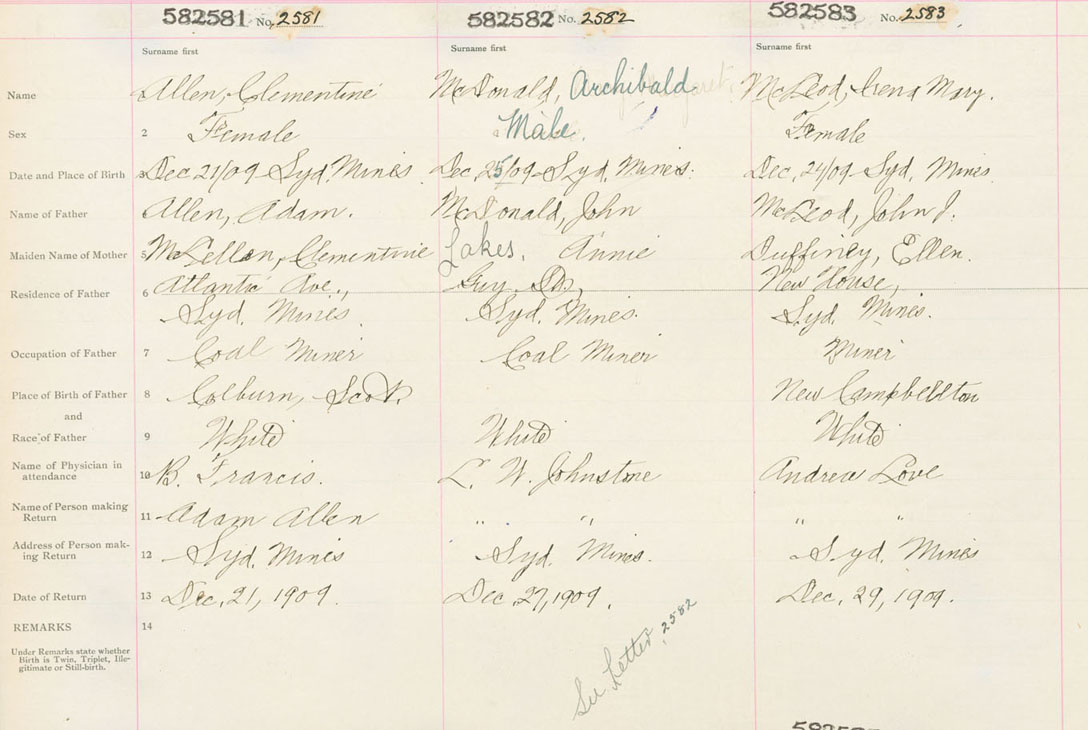 582581 No. 2581 582582 No. 2582 582583 No. 2583
Surname first Surname first Surname first
Name Allen, Clementine McDonald, Archibald McLeod, Mary.
Sex 2 Female Male. Female
Date and Place of Birth 3 Dec 21/09 Syd. Mines Dec, 25/09 Syd. Mines. Dec, 24/09 Syd. Mines.
Name of Father Allen, Adam. McDonald, John McLeod, John J.
Maiden Name of Mother 5 McLellan, Clementine Lakes, Annie Duffiney, Ellen.
Residence of Father 6 Atlantic Ave., Guy New House,
Syd. Mines Syd. Mines. Syd. Mines.
Occupation of Father 7 Coal Miner Coal Miner Miner
Place of Birth of Father 8 Colburn, Scot. New Campbellton
and
Race of Father 9 White White White
Name of Physician in
attendance 10 B. Francis. L. W. Johnstone Andrew Love
Name of Person making
Return 11 Adam Allen " " " "
Address of Person mak-
ing Return 12 Syd. Mines Syd. Mines. Syd. Mines
Date of Return 13 Dec, 21, 1909. Dec, 27, 1909. Dec, 29, 1909.
REMARKS 14
Under Remarks state whether
Birth is Twin, Triplet, Ille-
gitimate or Still-birth.
See Letter 2582